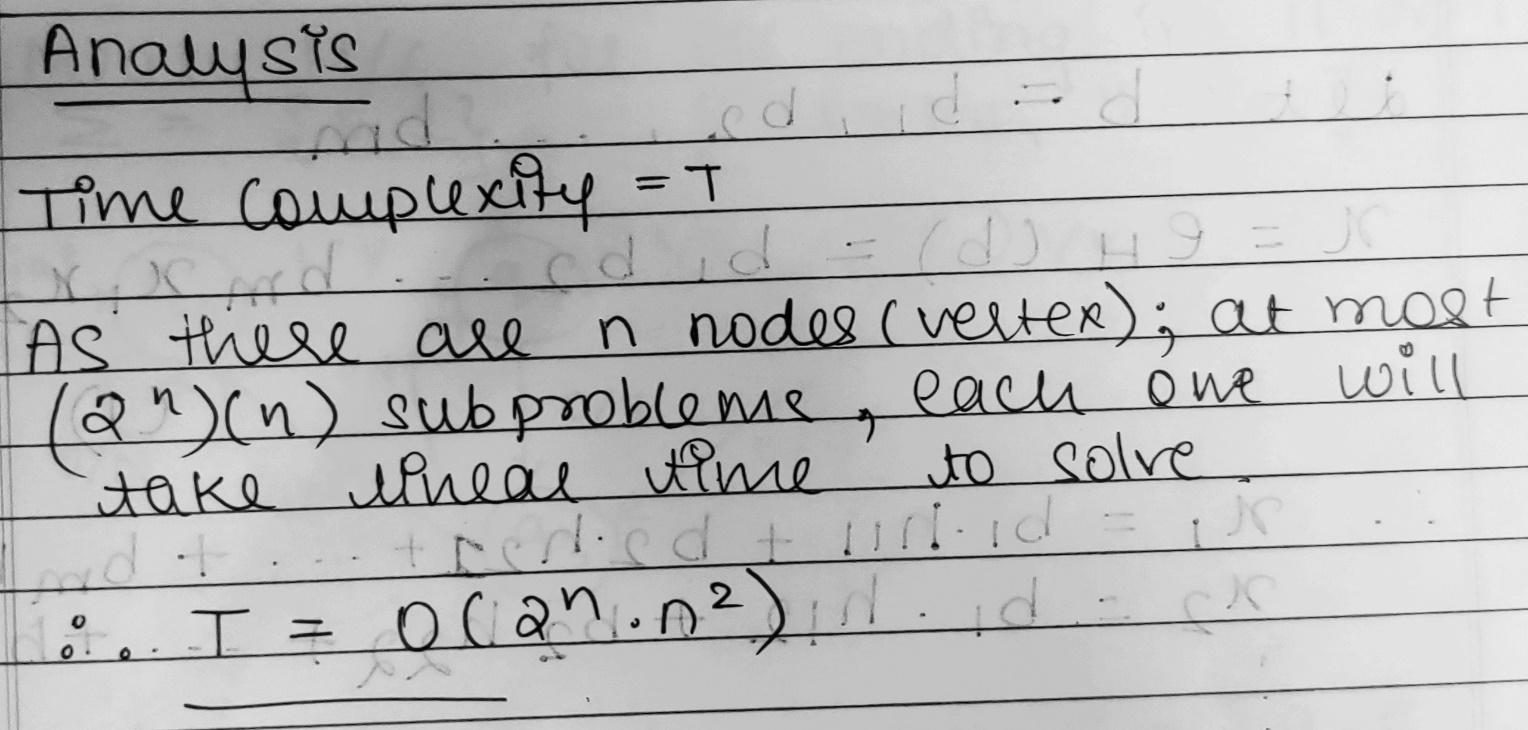 Analysis
Time Complexity = T
As there are n nodes (vertex); at most
(2ⁿ)(n) subproblems, each one will
take linear time to solve.
∴ T = O(2ⁿ.n²)